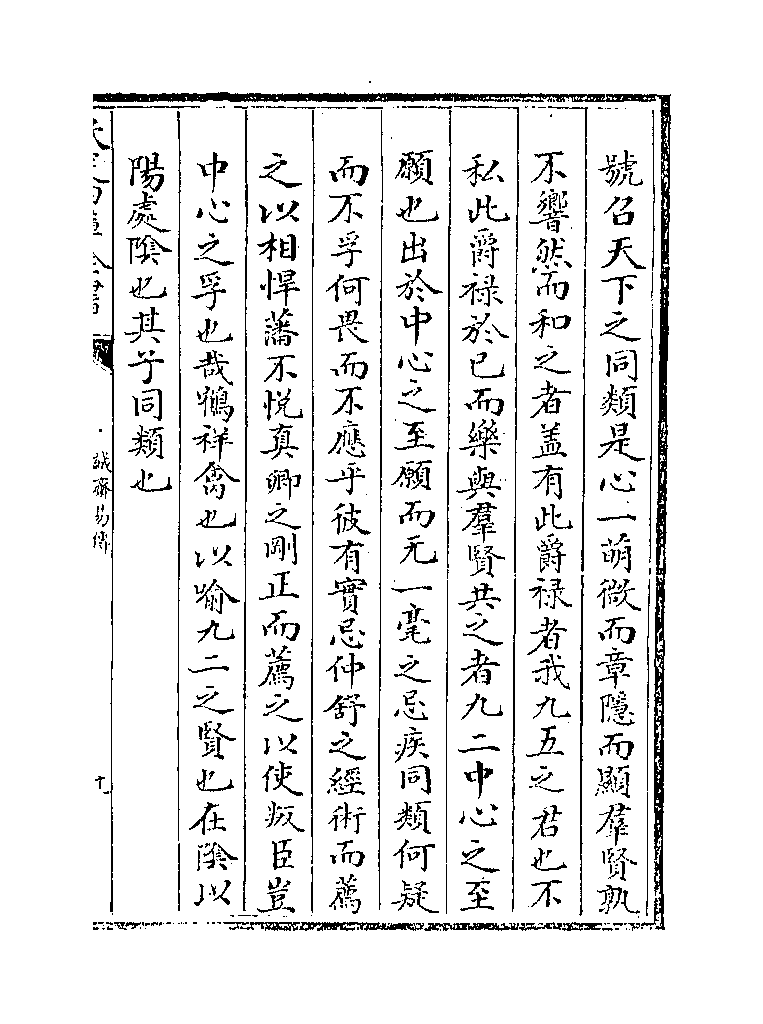 號召天下之同類是心一萌微而章隱而顯羣賢孰
不響然而和之者蓋有此爵禄者我九五之君也不
私此爵禄於已而樂與羣賢共之者九二中心之至
願也出於中心之至願而无一毫之忌疾同類何疑
而不孚何畏而不應乎彼有實忌仲舒之經術而薦
之以相悍藩不悦真卿之剛正而薦之以使叛臣豈
中心之孚也哉鶴祥禽也以喻九二之賢也在隂以
陽處隂也其子同類也
誠齋易傳